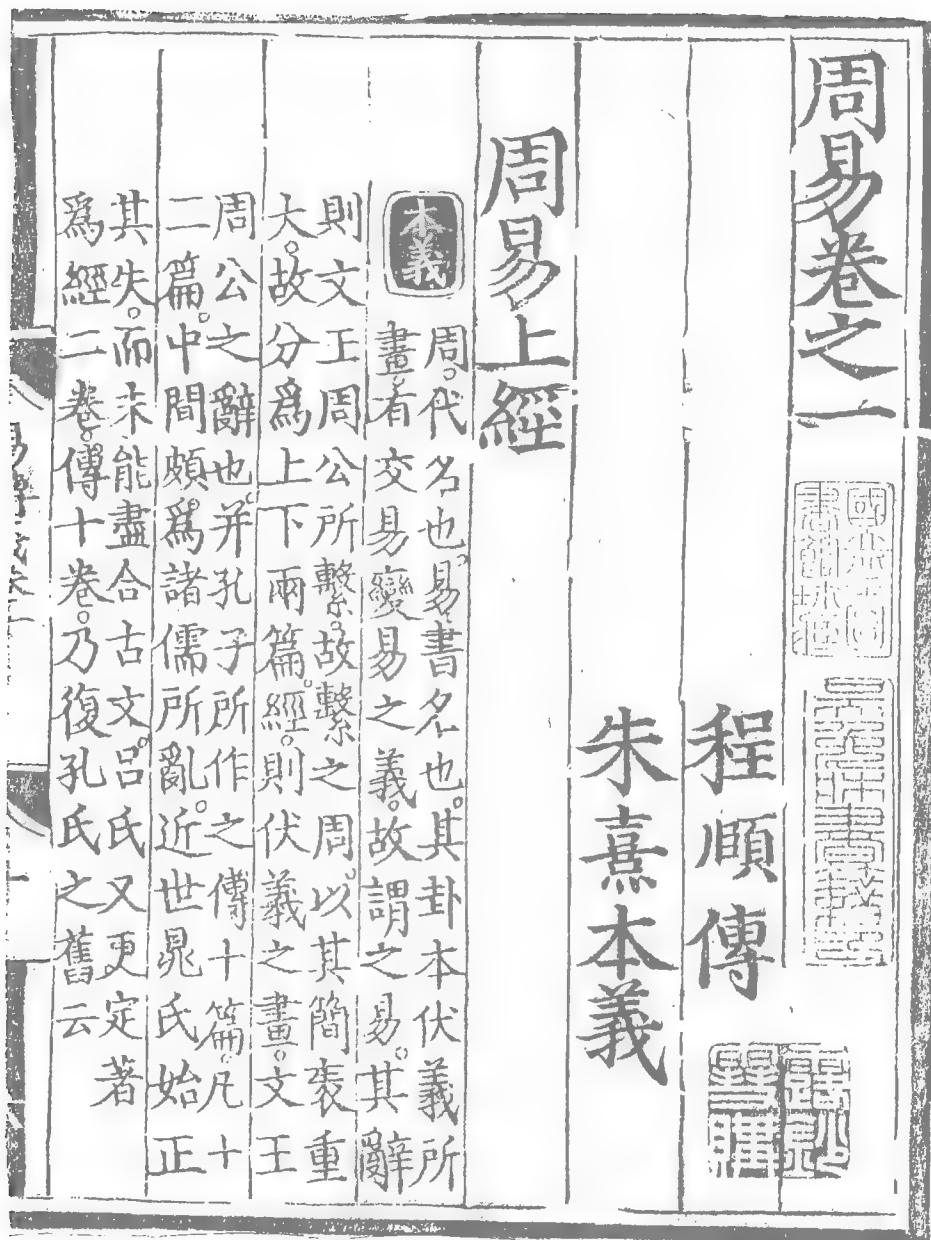 周易卷之一
程頤傳
朱熹本義
周易上經
本義
周。代名也。易書名也。其卦本伏羲所
畫。有交易變易之義。故謂之易。其辭
則文王周公所繫。故繫之周。以其簡袠重
大。故分爲上下兩篇。經。則伏羲之畫。文王
周公之辭也。并孔子所作之傳十篇。凡十
二篇。中間頗爲諸儒所亂。近世晁氏始正
其失。而未能盡合古文。呂氏又更定著
爲經二卷。傳十卷。乃復孔氏之舊云